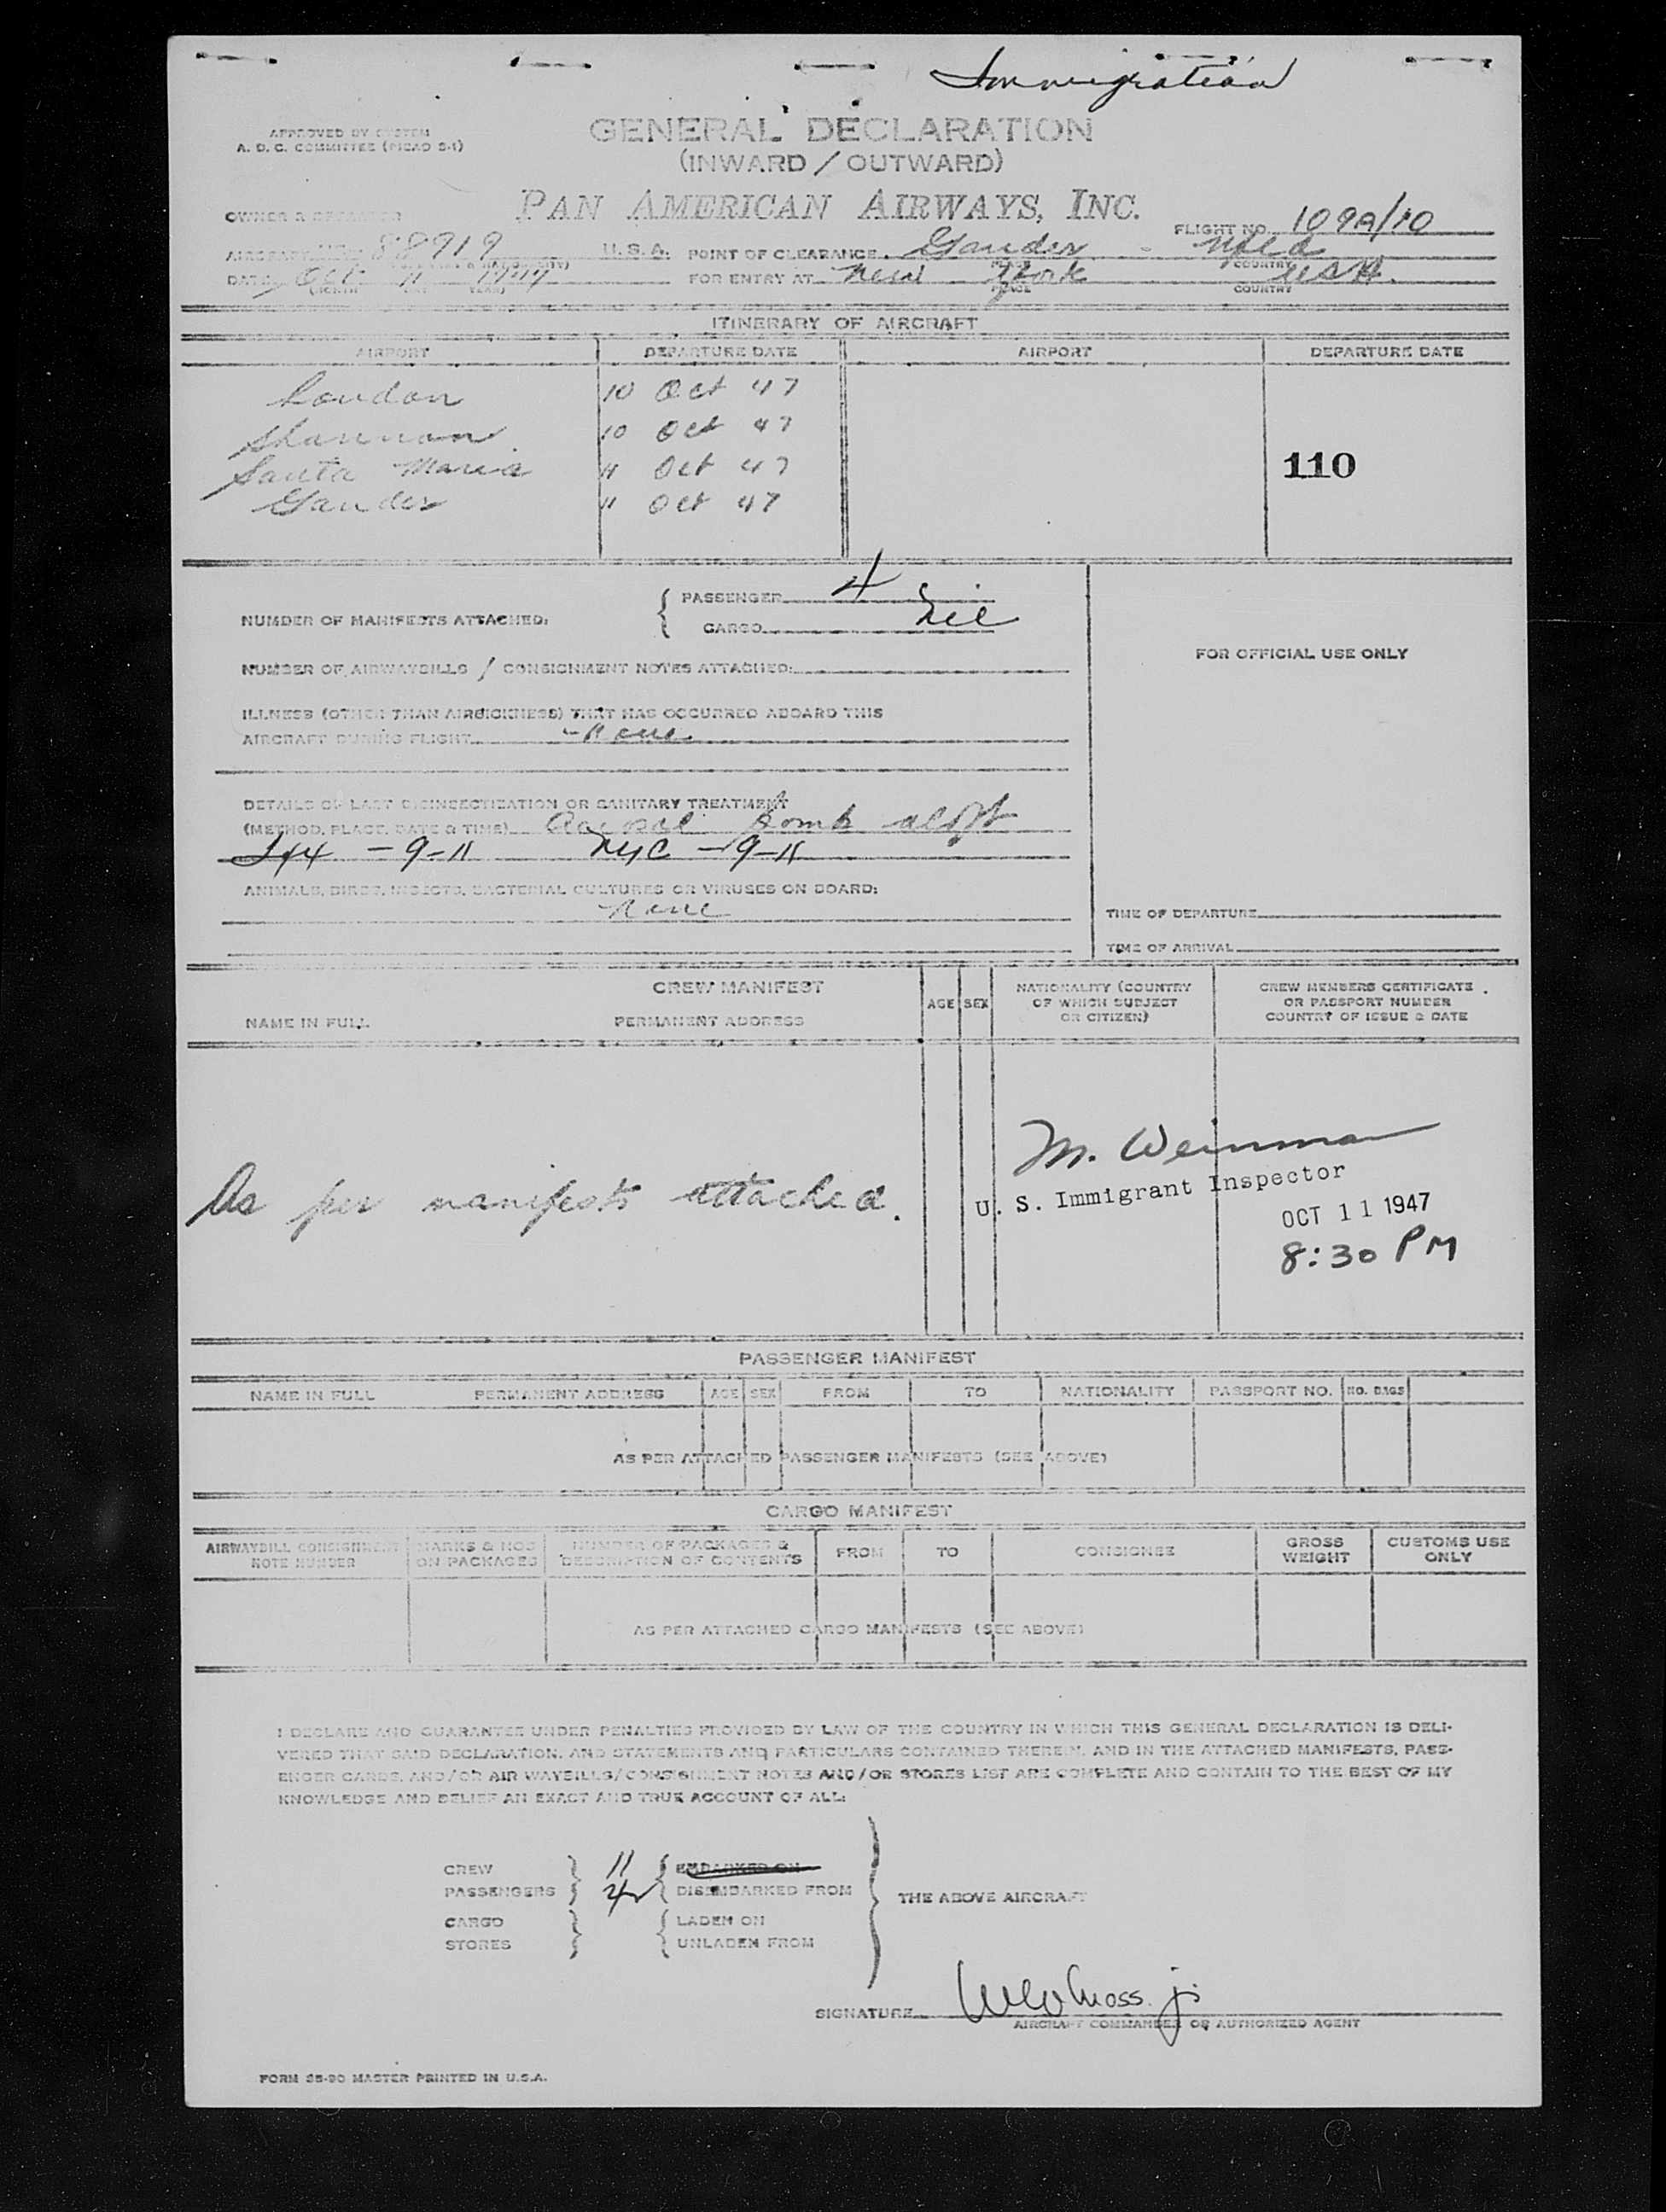 Immigration
APPROVED BY CUSTOM
A. D. C. COMMITTEE (PICAO S-1)
GENERAL DECLARATION
(INWARD / OUTWARD)
PAN AMERICAN AIRWAYS, INC.
OWNER & OPERATOR
FLIGHT NO. 109A/10
AIRCRAFT 88919 U. S. A. POINT OF CLEARANCE Gander Nfld
PLACE COUNTRY
DATE Oct 11 FOR ENTRY AT New York USA.
(MONTH DAY YEAR) PLACE COUNTRY
ITINERARY OF AIRCRAFT
AIRPORT DEPARTURE DATE AIRPORT DEPARTURE DATE
London 10 Oct 47
Shannon 10 Oct 47
Santa Maria 11 Oct 47
110
Gander 11 Oct 47
PASSENGER 4
NUMBER OF MANIFESTS ATTACHED:
CARGO nil
FOR OFFICIAL USE ONLY
NUMBER OF AIRWAYBILLS / CONSIGNMENT NOTES ATTACHED:
ILLNESS (OTHER THAN AIRSICKNESS) THAT HAS OCCURRED ABOARD THIS
AIRCRAFT DURING FLIGHT - None
DETAILS OF LAST DISINSECTIZATION OR SANITARY TREATMENT
(METHOD, PLACE, DATE & TIME) bomb aloft
- 9-11 NYC - 9-11
ANIMALS, BIRDS, INSECTS, BACTERIAL CULTURES OR VIRUSES ON BOARD:
None
TIME OF DEPARTURE
TIME OF ARRIVAL
CREW MANIFEST
NAME IN FULL PERMANENT ADDRESS AGE SEX
NATIONALITY (COUNTRY
OF WHICH SUBJECT
OR CITIZEN)
CREW MEMBERS CERTIFICATE
OR PASSPORT NUMBER
COUNTRY OF ISSUE & DATE
M. Weinman
As per manifests attached.
U. S. Immigrant Inspector
OCT 11 1947
8:30 PM
PASSENGER MANIFEST
NAME IN FULL PERMANENT ADDRESS AGE SEX FROM TO NATIONALITY PASSPORT NO. NO. BAGS
AS PER ATTACHED PASSENGER MANIFESTS (SEE ABOVE)
CARGO MANIFEST
AIRWAYBILL CONSIGNMENT
NOTE NUMBER
MARKS & NOS
ON PACKAGES
NUMBER OF PACKAGES &
DESCRIPTION OF CONTENTS
FROM TO CONSIGNEE
GROSS
WEIGHT
CUSTOMS USE
ONLY
AS PER ATTACHED CARGO MANIFESTS (SEE ABOVE)
I DECLARE AND GUARANTEE UNDER PENALTIES PROVIDED BY LAW OF THE COUNTRY IN WHICH THIS GENERAL DECLARATION IS DELI-
VERED THAT SAID DECLARATION, AND STATEMENTS AND PARTICULARS CONTAINED THEREIN, AND IN THE ATTACHED MANIFESTS, PASS-
ENGER CARDS, AND/OR AIR WAYBILLS/CONSIGNMENT NOTES AND/OR STORES LIST ARE COMPLETE AND CONTAIN TO THE BEST OF MY
KNOWLEDGE AND BELIEF AN EXACT AND TRUE ACCOUNT OF ALL:
CREW 11 EMBARKED ON
PASSENGERS DISEMBARKED FROM THE ABOVE AIRCRAFT
CARGO LADEN ON
STORES UNLADEN FROM
SIGNATURE
AIRCRAFT COMMANDER OR AUTHORIZED AGENT
FORM SS-90 MASTER PRINTED IN U.S.A.